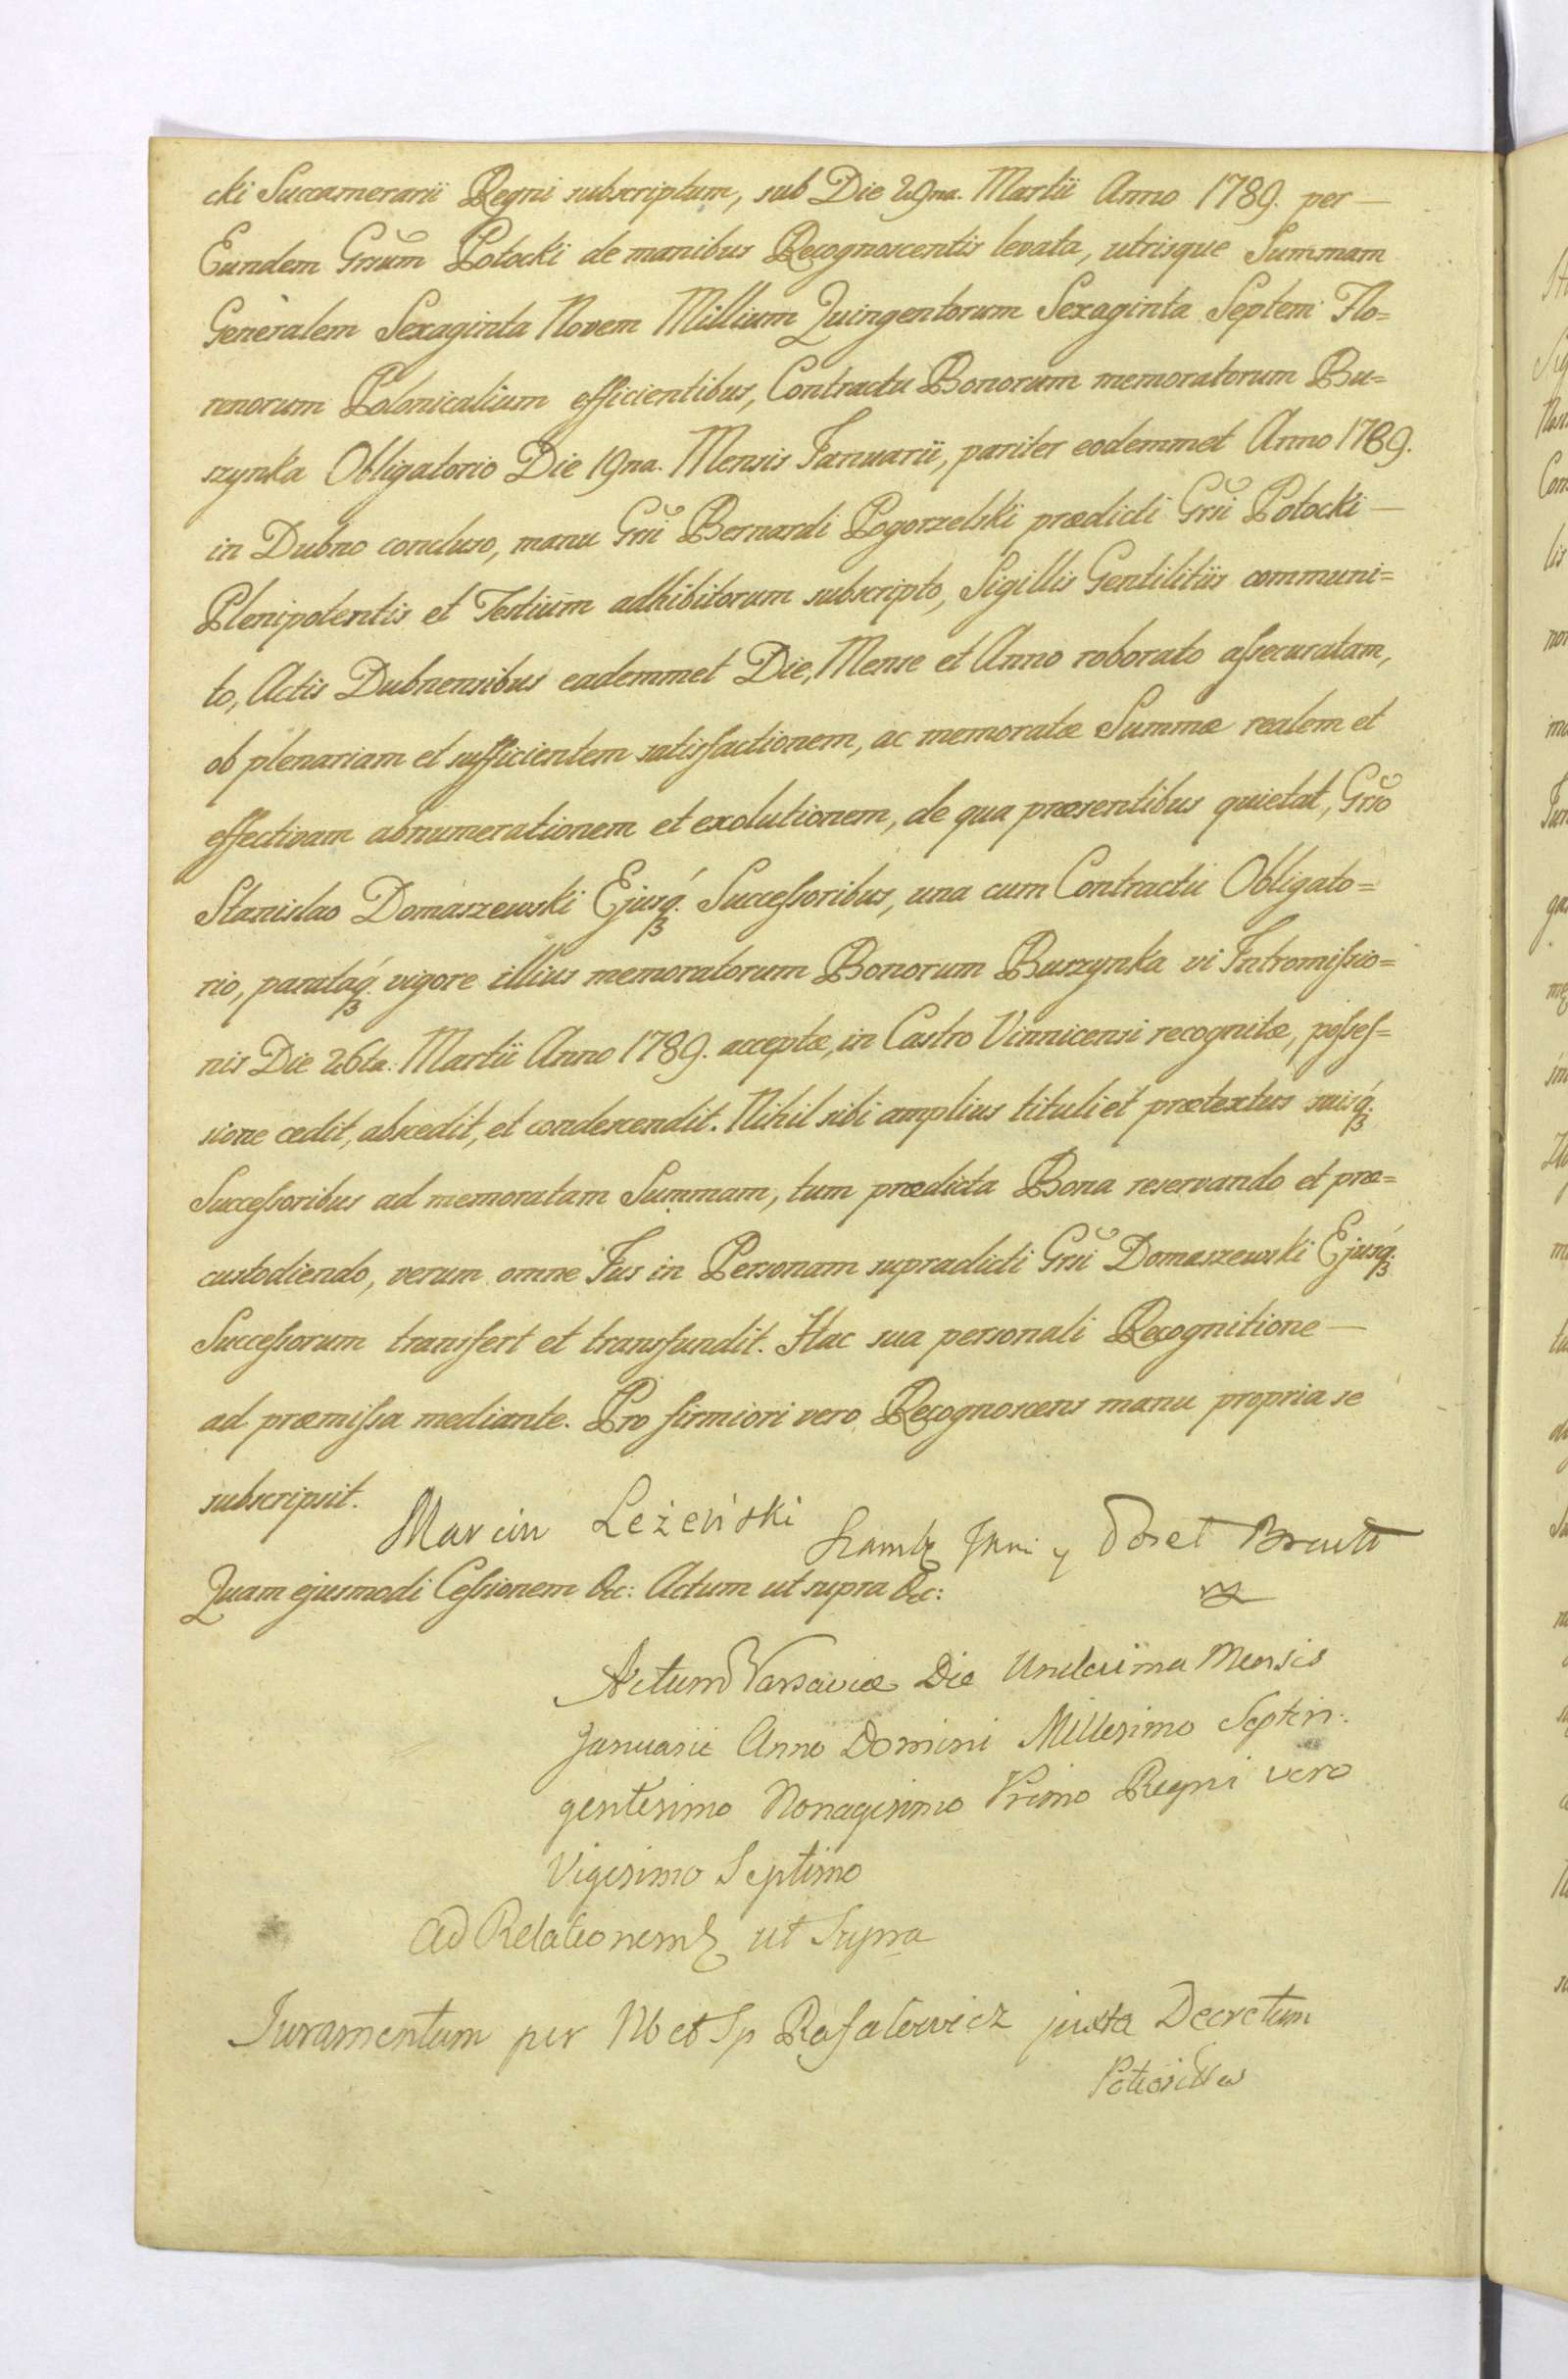 cki Succamerarii Regni subscriptum, sub Die 29na. Martii Anno 1789. per —
Eundem Grsum Potocki de manibus Recognoscentis levata, utrisque Summam
Generalem Sexaginta Novem Millium Quingentorum Sexaginta Septem Flo=
renorum Polonicalium efficientibus, Contractu Bonorum memoratorum Bu=
rzynka Obligatorio Die 19na. Mensis Januarii, pariter eodemmet Anno 1789.
in Dubno concluso, manu Grsi Bernardi Pogorzelski prædicti Grsi Potocki —
Plenipotentis et Testium adhibitorum subscripto, Sigillis Gentilitiis communi=
to, Actis Dubnensibus eademmet Die, Mense et Anno roborato assecuratam,
ob plenariam et sufficientem satisfactionem, ac memoratæ Summæ realem et
effectivam abnumerationem et exolutionem, de qua præsentibus quietat, Grso
Stanislao Domaszewski Ejusq. Successoribus, una cum Contractu Obligato=
rio, parataq. vigore illius memoratorum Bonorum Burzynka vi Intromissio=
nis Die 26ta. Martii Anno 1789. acceptæ, in Castro Vinnicensi recognitæ, posses=
sione cedit, abscedit, et condescendit. Nihil sibi amplius tituli et prætextus suisq.
Successoribus ad memoratam Summam, tum prædicta Bona reservando et præ=
custodiendo, verum omne Jus in Personam supradicti Grsi Domaszewski Ejusq.
Successorum transfert et transfundit. Hac sua personali Recognitione —
ad præmissa mediante. Pro firmiori vero Recognoscens manu propria se
subscripsit.
Marcin Leżeński y Poseł
Quam ejusmodi Cessionem &c: Actum ut supra &c:
Actum Varsaviæ Die Undecima Mensis
Januarii Anno Domini Millesimo Septin:
gentesimo Nonagesimo Primo Regni vero
Vigesimo Septimo
Ad Relationem ut Supra
Juramentum per Nb et Sp Rafałowicz juxta Decretum